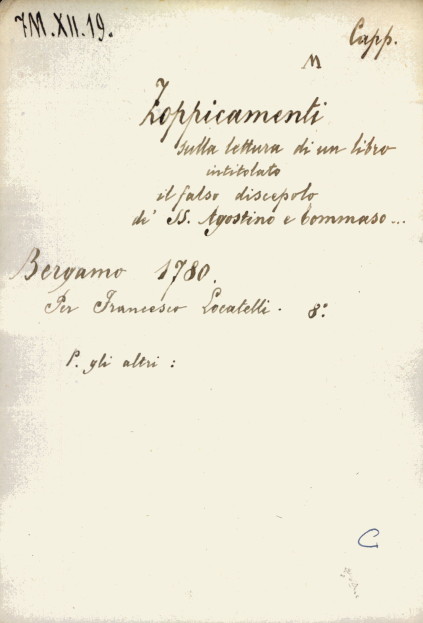 7M.XII.19.
Capp.
M
Zoppicamenti
sulla lettura di un libro
intitolato
il falso discepolo
di' SS. Agostino e Tommaso...
Bergamo 1780.
Per Francesco Locatelli. 8º.
P. gli altri :
C